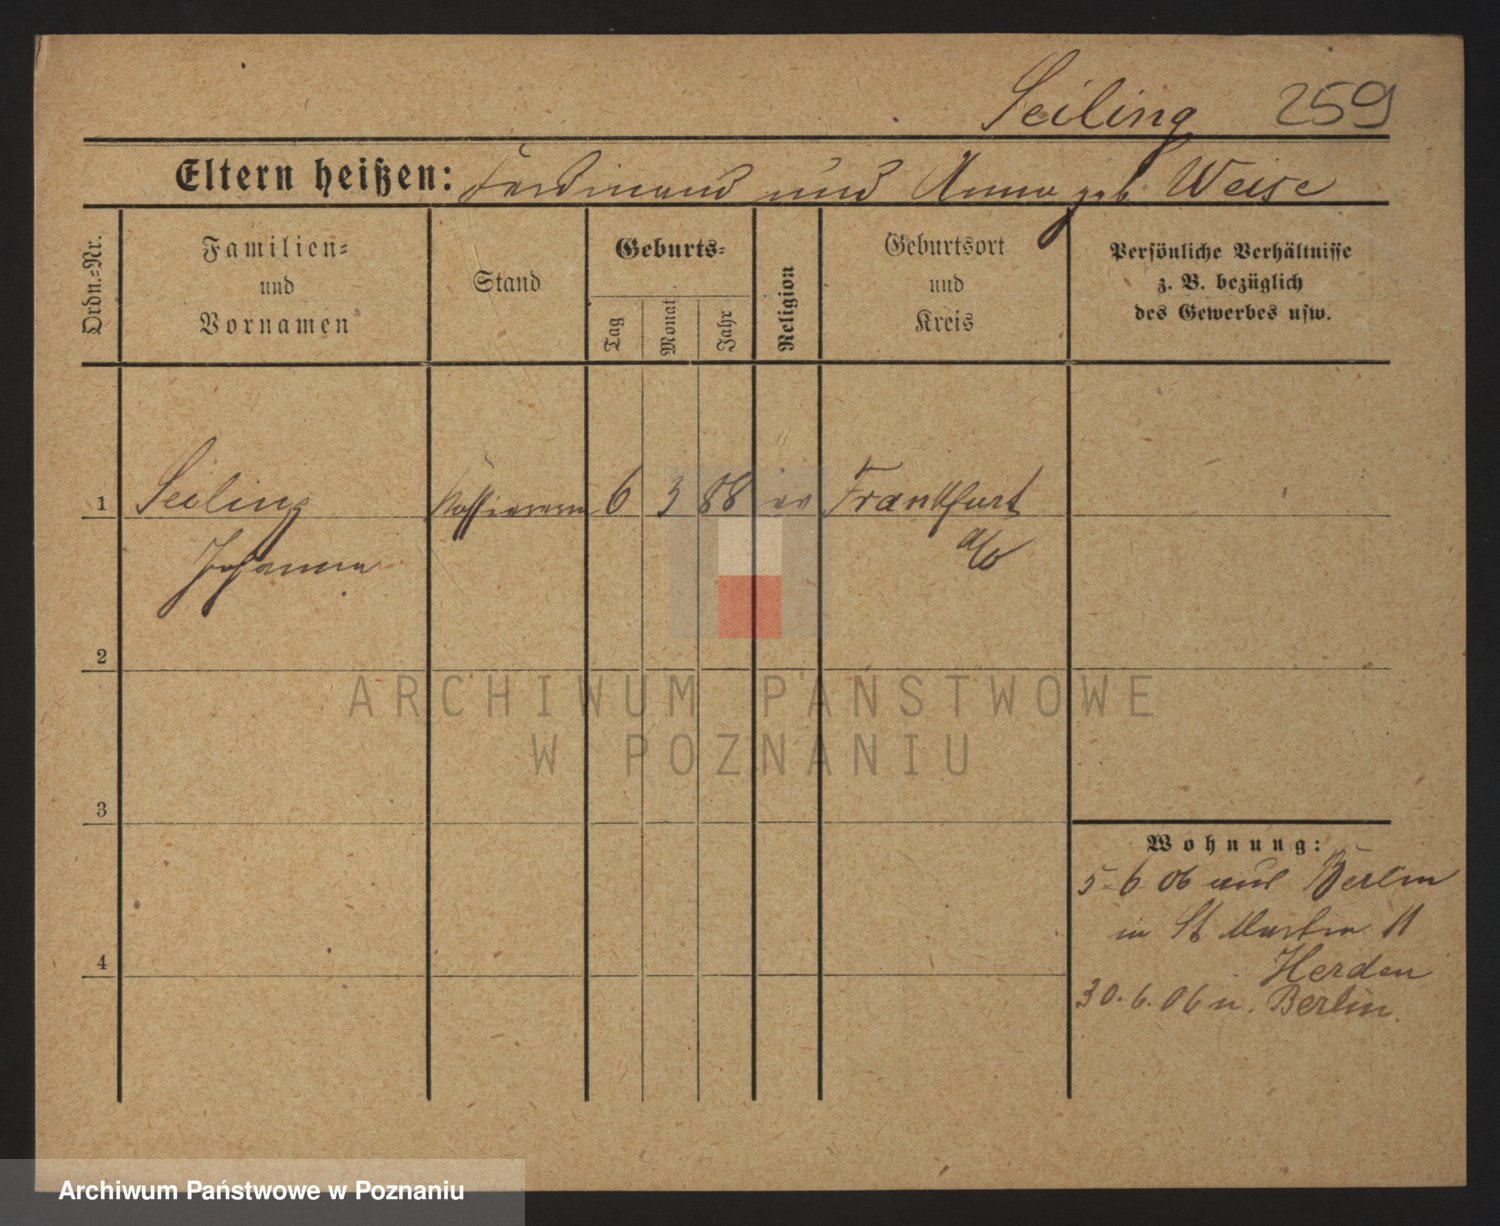 Seiling 259
Eltern heißen: Ferdinand und Anna geb Weise
Ordn.=Nr.
Familien=
und
Vornamen
Stand
Geburts=
Tag
Monat
Jahr
Religion
Geburtsort
und
Kreis
Persönliche Verhältnisse
z. B. bezüglich
des Gewerbes usw.
1 Seiling Kassiererin 6 3 88 ev Frankfurt
Johanna a/O
2
ARCHIWUM PAŃSTWOWE
W POZNANIU
3
4
Wohnung:
5. 6 06 aus Berlin
in St Martin 11
Herden
30. 6. 06 n. Berlin.
Archiwum Państwowe w Poznaniu